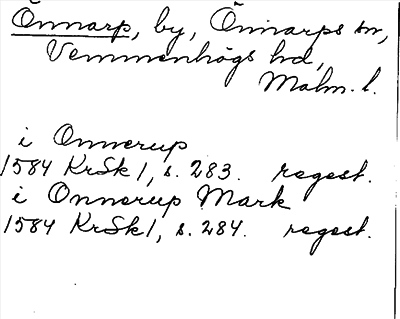 Önnarp, by, Önnarps sn,
Vemmenhögs hd,
Malm. l.
i Onnerup
1584 KrSk 1, s. 283. regest.
i Onnerup Mark
1584 KrSk 1, s. 284. regest.